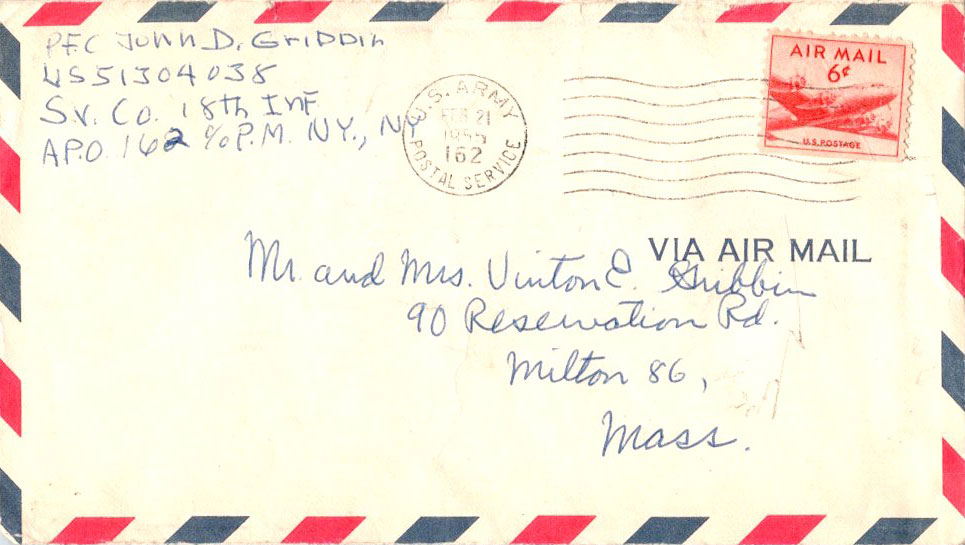 PFC John D. Gribbin
US51304038
Sv. Co. 18th Inf.
A.P.O. 162 c/o P.M. NY., NY
U.S. ARMY
FEB 21
1955
162
POSTAL SERVICE
AIR MAIL
6¢
U.S. POSTAGE
VIA AIR MAIL
Mr. and Mrs. Vinton E. Gribbin
90 Reservation Rd.
Milton 86,
Mass.